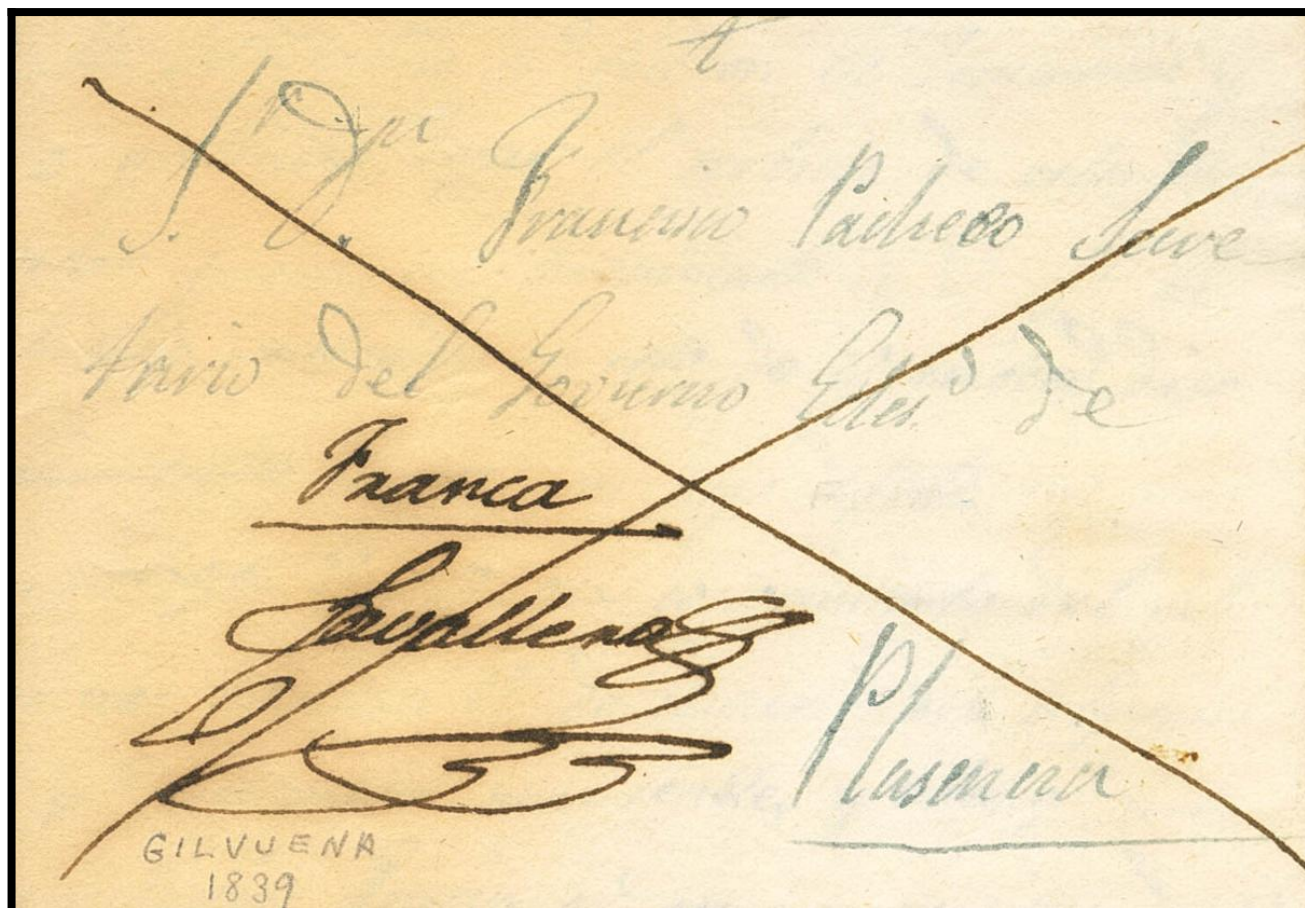 S.r D.n Francisco Pacheco Secre
tario del Govierno Ecles.o de
Franca
Plasencia
GILVUENA
1839